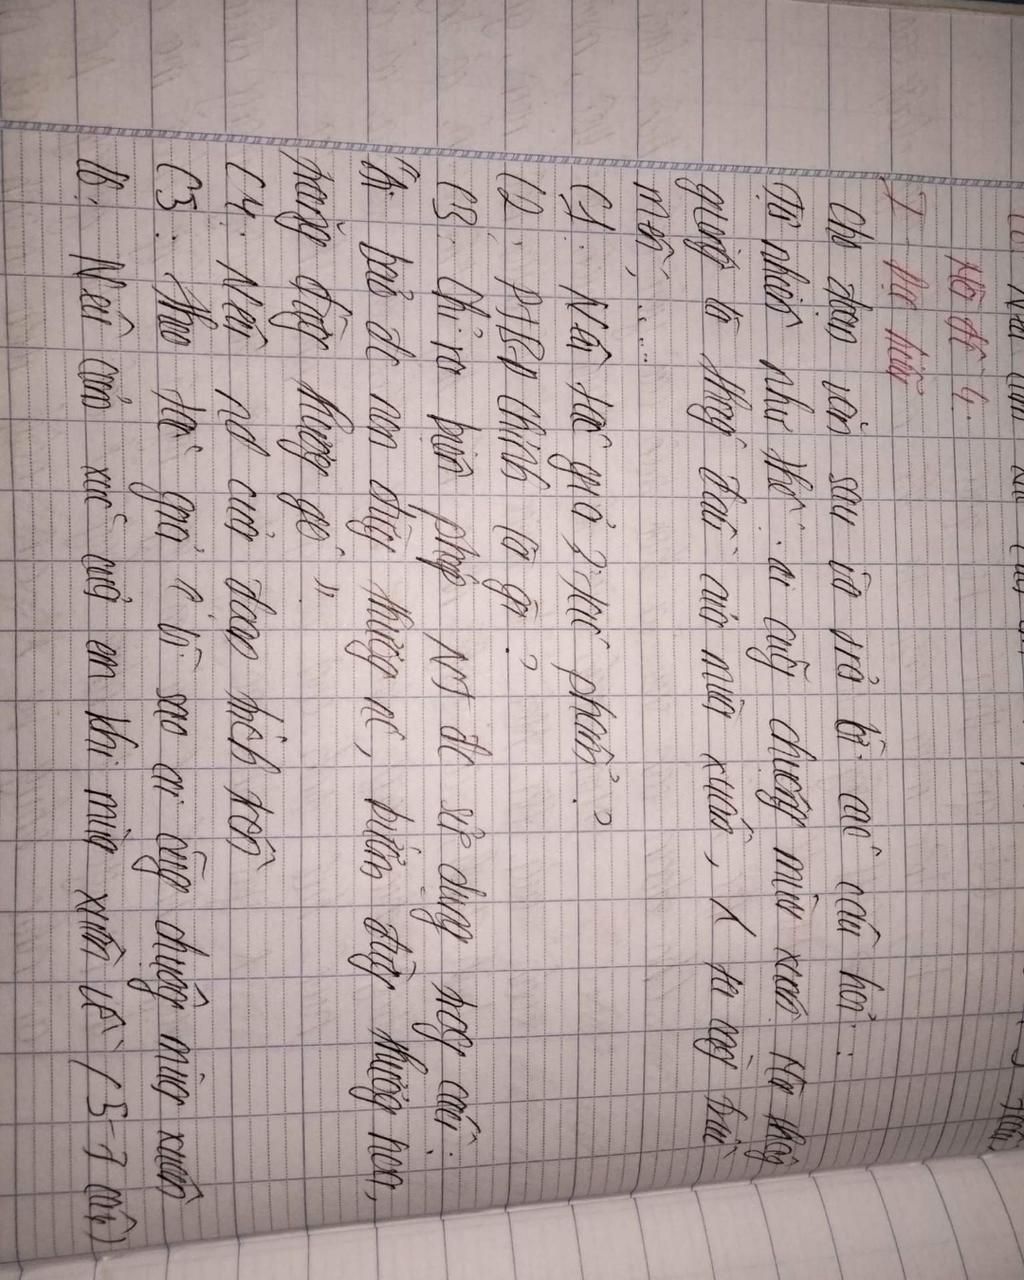 Mã đề 4.
I. Đọc hiểu
Cho đoạn văn sau và trả lời các câu hỏi:
Tự nhiên như thế: ai cũng chuộng mùa xuân. Mà tháng
giêng là tháng đầu của mùa xuân, người ta càng trìu
mến, .....
C1: Nêu tác giả? Tác phẩm?
C2: PTBĐ chính là gì?
C3: Chỉ ra biện pháp NT đc sử dụng trong câu:
bảo đc non đừng thương nc, bướm đừng thương hoa,
trăng đừng thương gió".
C4: Nêu nd của đoạn trích trên
C5: Theo tác giả vì sao ai cũng chuộng mùa xuân
C6: Nêu cảm xúc của em khi mùa xuân về (5-7 câu)